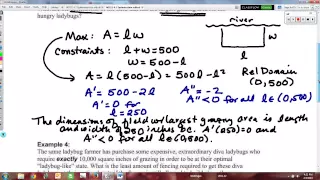 hungry ladybugs?
river
Max: A = lw
Constraints: l + w = 500
w = 500 - l
A = l(500-l) = 500l - l²
w
l
Rel Domain
(0,500)
A' = 500 - 2l
A'' = -2
A' = 0 for
l = 250
A'' < 0 for all l ∈ (0,500)
The dimensions of field w/ largest grazing area is length
and width of 250 inches bc. A'(250)=0 and
A'' < 0 for all l ∈ (0,500).
Example 4:
The same ladybug farmer has purchase some expensive, extraordinary diva ladybugs who
require exactly 10,000 square inches of grazing in order to be at their optimal
"ladybug-like" state. What is the least amount of fencing required to get these diva